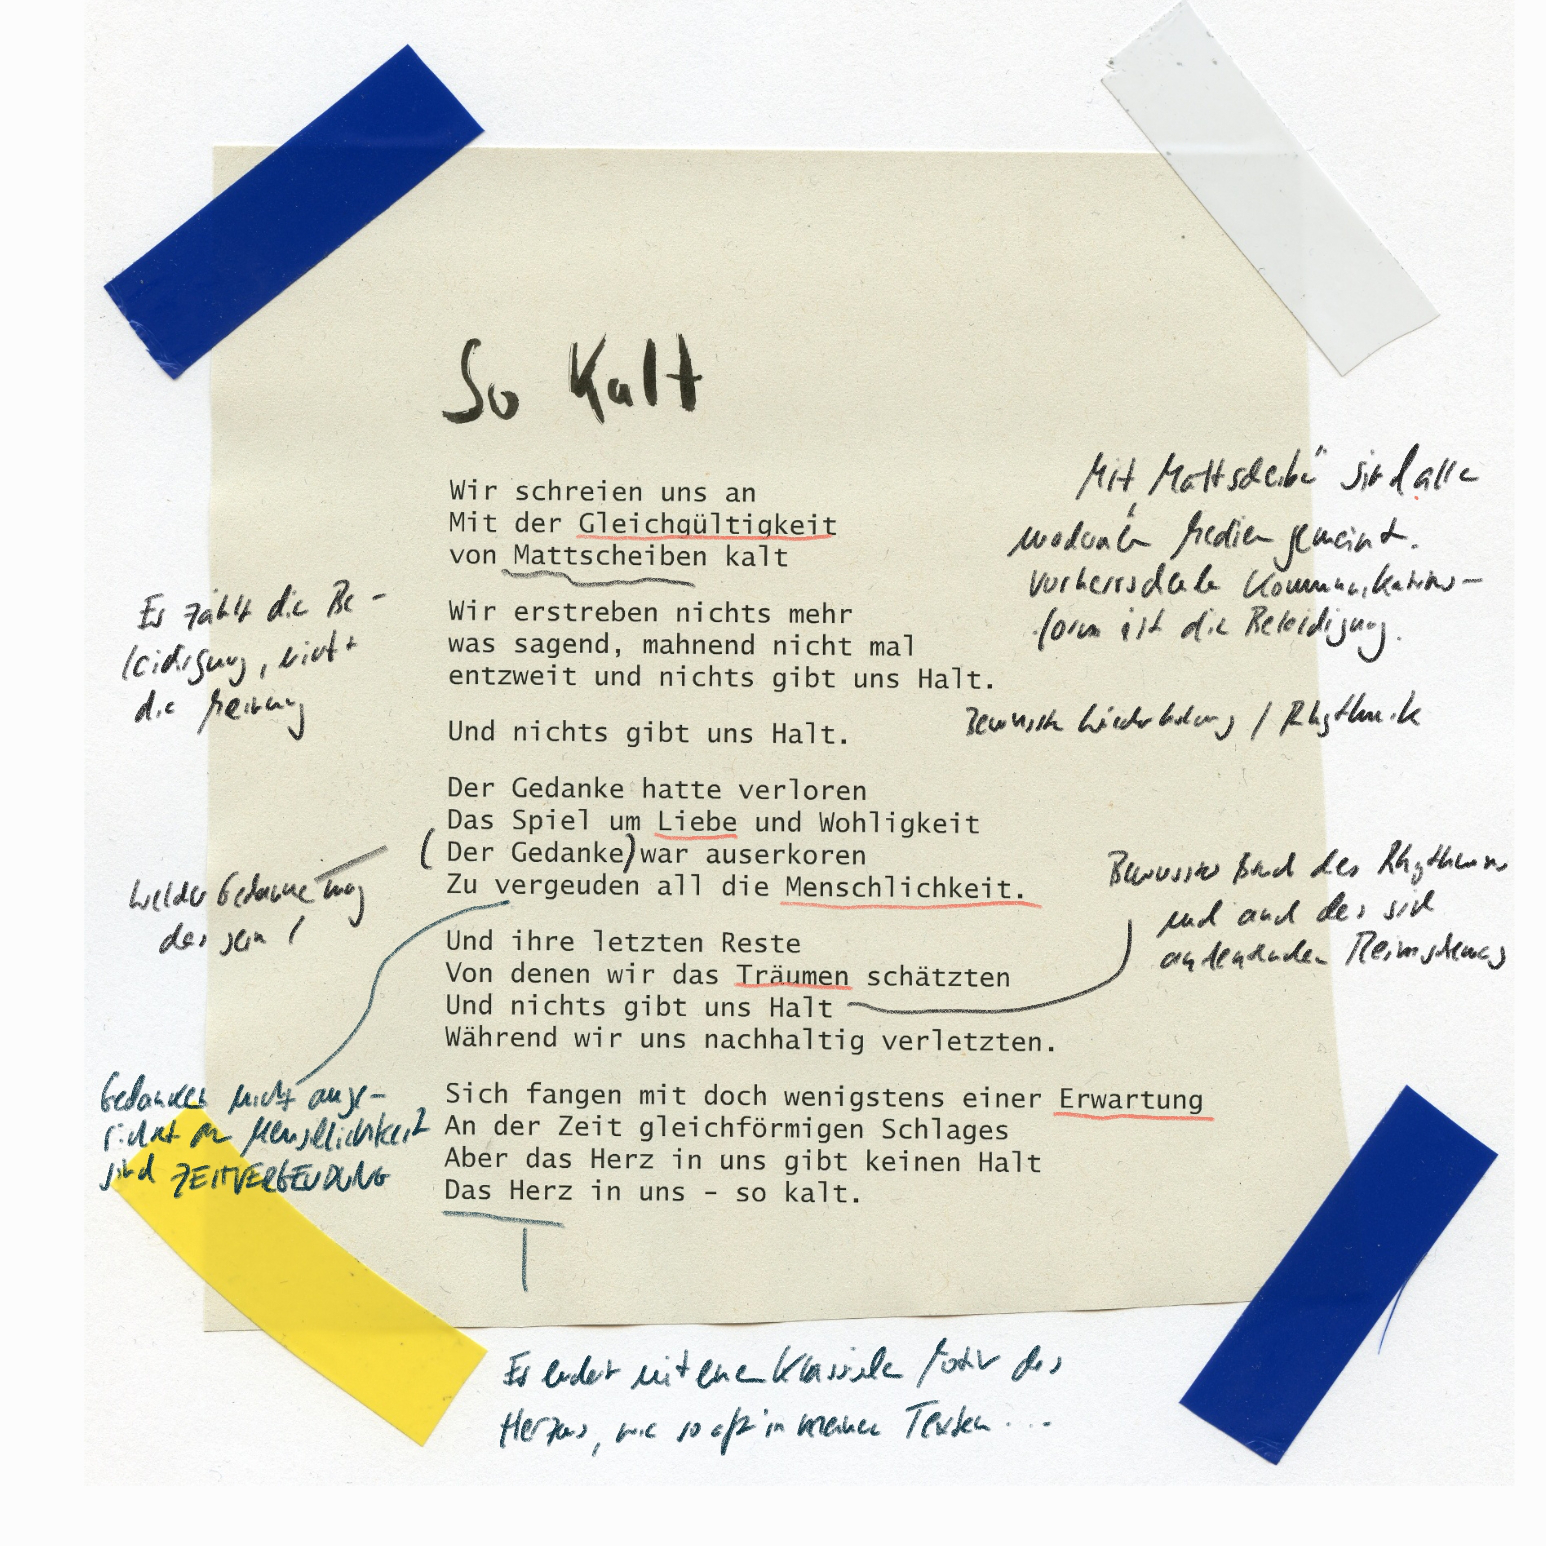 So Kalt
Wir schreien uns an
Mit der Gleichgültigkeit
von Mattscheiben kalt
Mit "Mattscheibe" sind alle
modernen Medien gemeint.
vorherrschende Kommunikations-
form ist die Beleidigung.
Wir erstreben nichts mehr
was sagend, mahnend nicht mal
entzweit und nichts gibt uns Halt.
Es zählt die Be-
leidigung, nicht
die Meinung
Und nichts gibt uns Halt.
Bewusste Wiederholung / Rhythmik
Der Gedanke hatte verloren
Das Spiel um Liebe und Wohligkeit
(Der Gedanke) war auserkoren
Zu vergeuden all die Menschlichkeit.
Welcher Gedanke mag
das sein!
Bewusster Bruch des Rhythmus
und auch des sich
andeutenden Reimschemas
Und ihre letzten Reste
Von denen wir das Träumen schätzten
Und nichts gibt uns Halt
Während wir uns nachhaltig verletzten.
Gedanken nicht ausge-
richtet an Menschlichkeit
sind ZEITVERGEUDUNG
Sich fangen mit doch wenigstens einer Erwartung
An der Zeit gleichförmigen Schlages
Aber das Herz in uns gibt keinen Halt
Das Herz in uns – so kalt.
Es endet mit einem Klassiker Motiv des
Herzens, wie so oft in meinen Texten ...